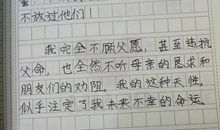 不放过他们！
我完全不顾父愿，甚至违抗
父命，也全然不听母亲的恳求和
朋友们的劝阻。我的这种天性，
似乎注定了我未来不幸的命运。